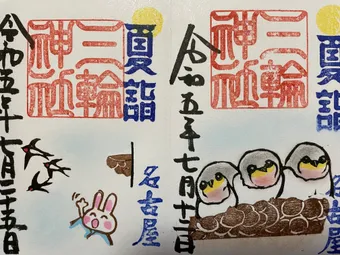 夏詣
三輪神社
令和五年七月二十五日
名古屋
夏詣
三輪神社
令和五年七月十二日
名古屋